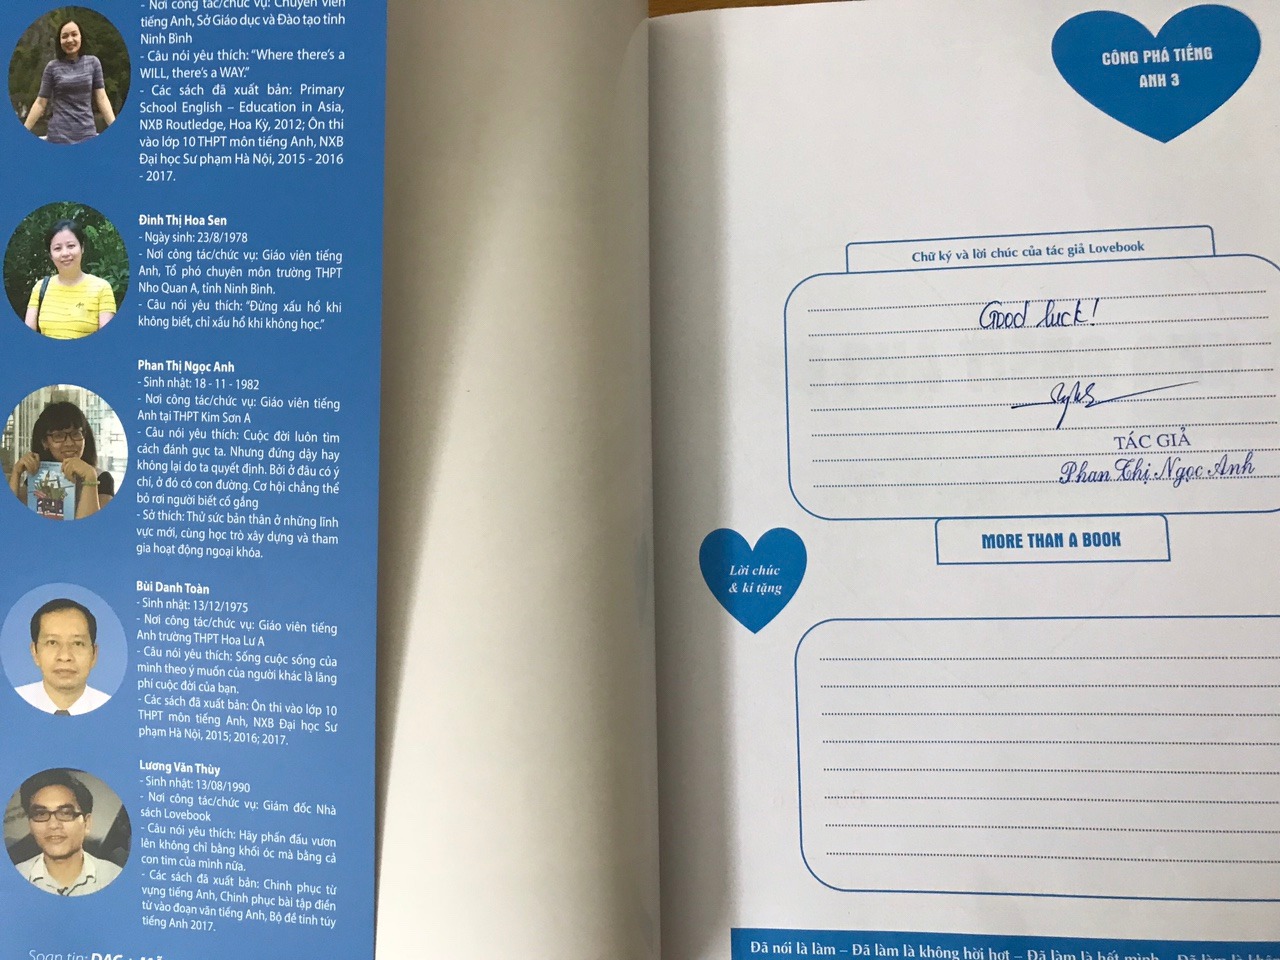 - Nơi công tác/chức vụ: Chuyên viên
tiếng Anh, Sở Giáo dục và Đào tạo tỉnh
Ninh Bình
- Câu nói yêu thích: “Where there’s a
WILL, there’s a WAY.”
- Các sách đã xuất bản: Primary
School English – Education in Asia,
NXB Routledge, Hoa Kỳ, 2012; Ôn thi
vào lớp 10 THPT môn tiếng Anh, NXB
Đại học Sư phạm Hà Nội, 2015 - 2016
- 2017.
Đinh Thị Hoa Sen
- Ngày sinh: 23/8/1978
- Nơi công tác/chức vụ: Giáo viên tiếng
Anh, Tổ phó chuyên môn trường THPT
Nho Quan A, tỉnh Ninh Bình.
- Câu nói yêu thích: “Đừng xấu hổ khi
không biết, chỉ xấu hổ khi không học.”
Phan Thị Ngọc Anh
- Sinh nhật: 18 - 11 - 1982
- Nơi công tác/chức vụ: Giáo viên tiếng
Anh tại THPT Kim Sơn A
- Câu nói yêu thích: Cuộc đời luôn tìm
cách đánh gục ta. Nhưng đứng dậy hay
không lại do ta quyết định. Bởi ở đâu có ý
chí, ở đó có con đường. Cơ hội chẳng thể
bỏ rơi người biết cố gắng
- Sở thích: Thử sức bản thân ở những lĩnh
vực mới, cùng học trò xây dựng và tham
gia hoạt động ngoại khóa.
Bùi Danh Toàn
- Sinh nhật: 13/12/1975
- Nơi công tác/chức vụ: Giáo viên tiếng
Anh trường THPT Hoa Lư A
- Câu nói yêu thích: Sống cuộc sống của
mình theo ý muốn của người khác là lãng
phí cuộc đời của bạn.
- Các sách đã xuất bản: Ôn thi vào lớp 10
THPT môn tiếng Anh, NXB Đại học Sư
phạm Hà Nội, 2015; 2016; 2017.
Lương Văn Thùy
- Sinh nhật: 13/08/1990
- Nơi công tác/chức vụ: Giám đốc Nhà
sách Lovebook
- Câu nói yêu thích: Hãy phấn đấu vươn
lên không chỉ bằng khối óc mà bằng cả
con tim của mình nữa.
- Các sách đã xuất bản: Chinh phục từ
vựng tiếng Anh, Chinh phục bài tập điền
từ vào đoạn văn tiếng Anh, Bộ đề tinh túy
tiếng Anh 2017.
Soạn tin:
CÔNG PHÁ TIẾNG
ANH 3
Chữ ký và lời chúc của tác giả Lovebook
Good luck!
TÁC GIẢ
Phan Thị Ngọc Anh
MORE THAN A BOOK
Lời chúc
& kí tặng
Đã nói là làm – Đã làm là không hời hợt – Đã làm là hết mình – Đã làm là